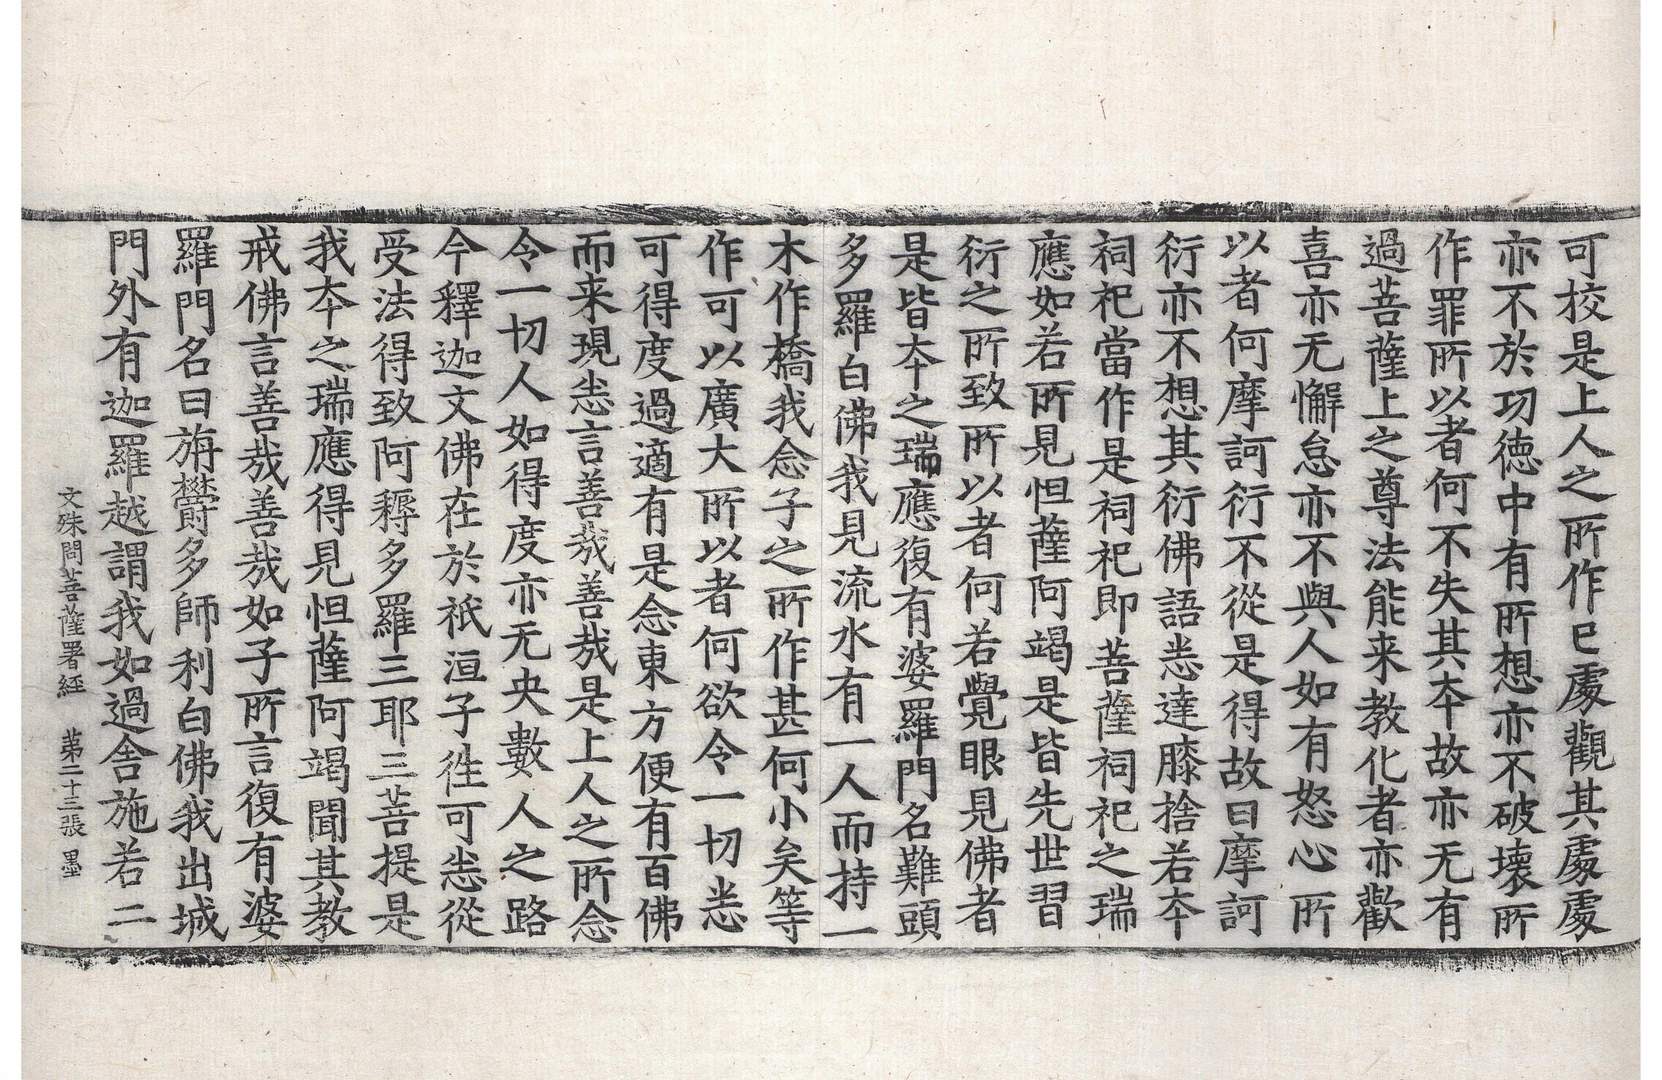 可校是上人之所作已處觀其處處
亦不於功德中有所想亦不破壞所
作罪所以者何不失其夲故亦无有
過菩薩上之尊法能来教化者亦歡
喜亦无懈怠亦不與人如有怒心所
以者何摩訶衍不從是得故曰摩訶
衍亦不想其衍佛語悉達膝捨若夲
祠祀當作是祠祀即菩薩祠祀之瑞
應如若所見怛薩阿竭是皆先世習
衍之所致所以者何若覺眼見佛者
是皆夲之瑞應復有婆羅門名難頭
多羅白佛我見流水有一人而持一
木作橋我念子之所作甚何小矣等
作可以廣大所以者何欲令一切悉
可得度過適有是念東方便有百佛
而来現悉言善哉善哉是上人之所念
令一切人如得度亦无央數人之路
今釋迦文佛在於祇洹子徃可悉從
受法得致阿耨多羅三耶三菩提是
我夲之瑞應得見怛薩阿竭聞其教
戒佛言善哉善哉如子所言復有婆
羅門名曰旃欝多師利白佛我出城
門外有迦羅越謂我如過舍施若二
文殊問菩薩署經 第二十三張 墨